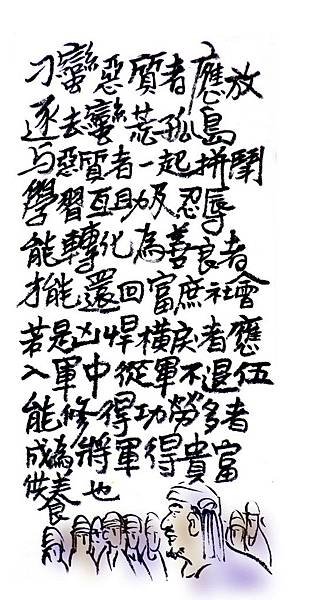 刁蠻惡質者應放
逐去蠻荒孤島
与惡質者一起拼鬧
學習互助及忍辱
能轉化為善良者
才能還回富庶社會
若是凶悍橫戾者應
入軍中從軍不退伍
能修得功勞多者
成為將軍得貴富
供養也